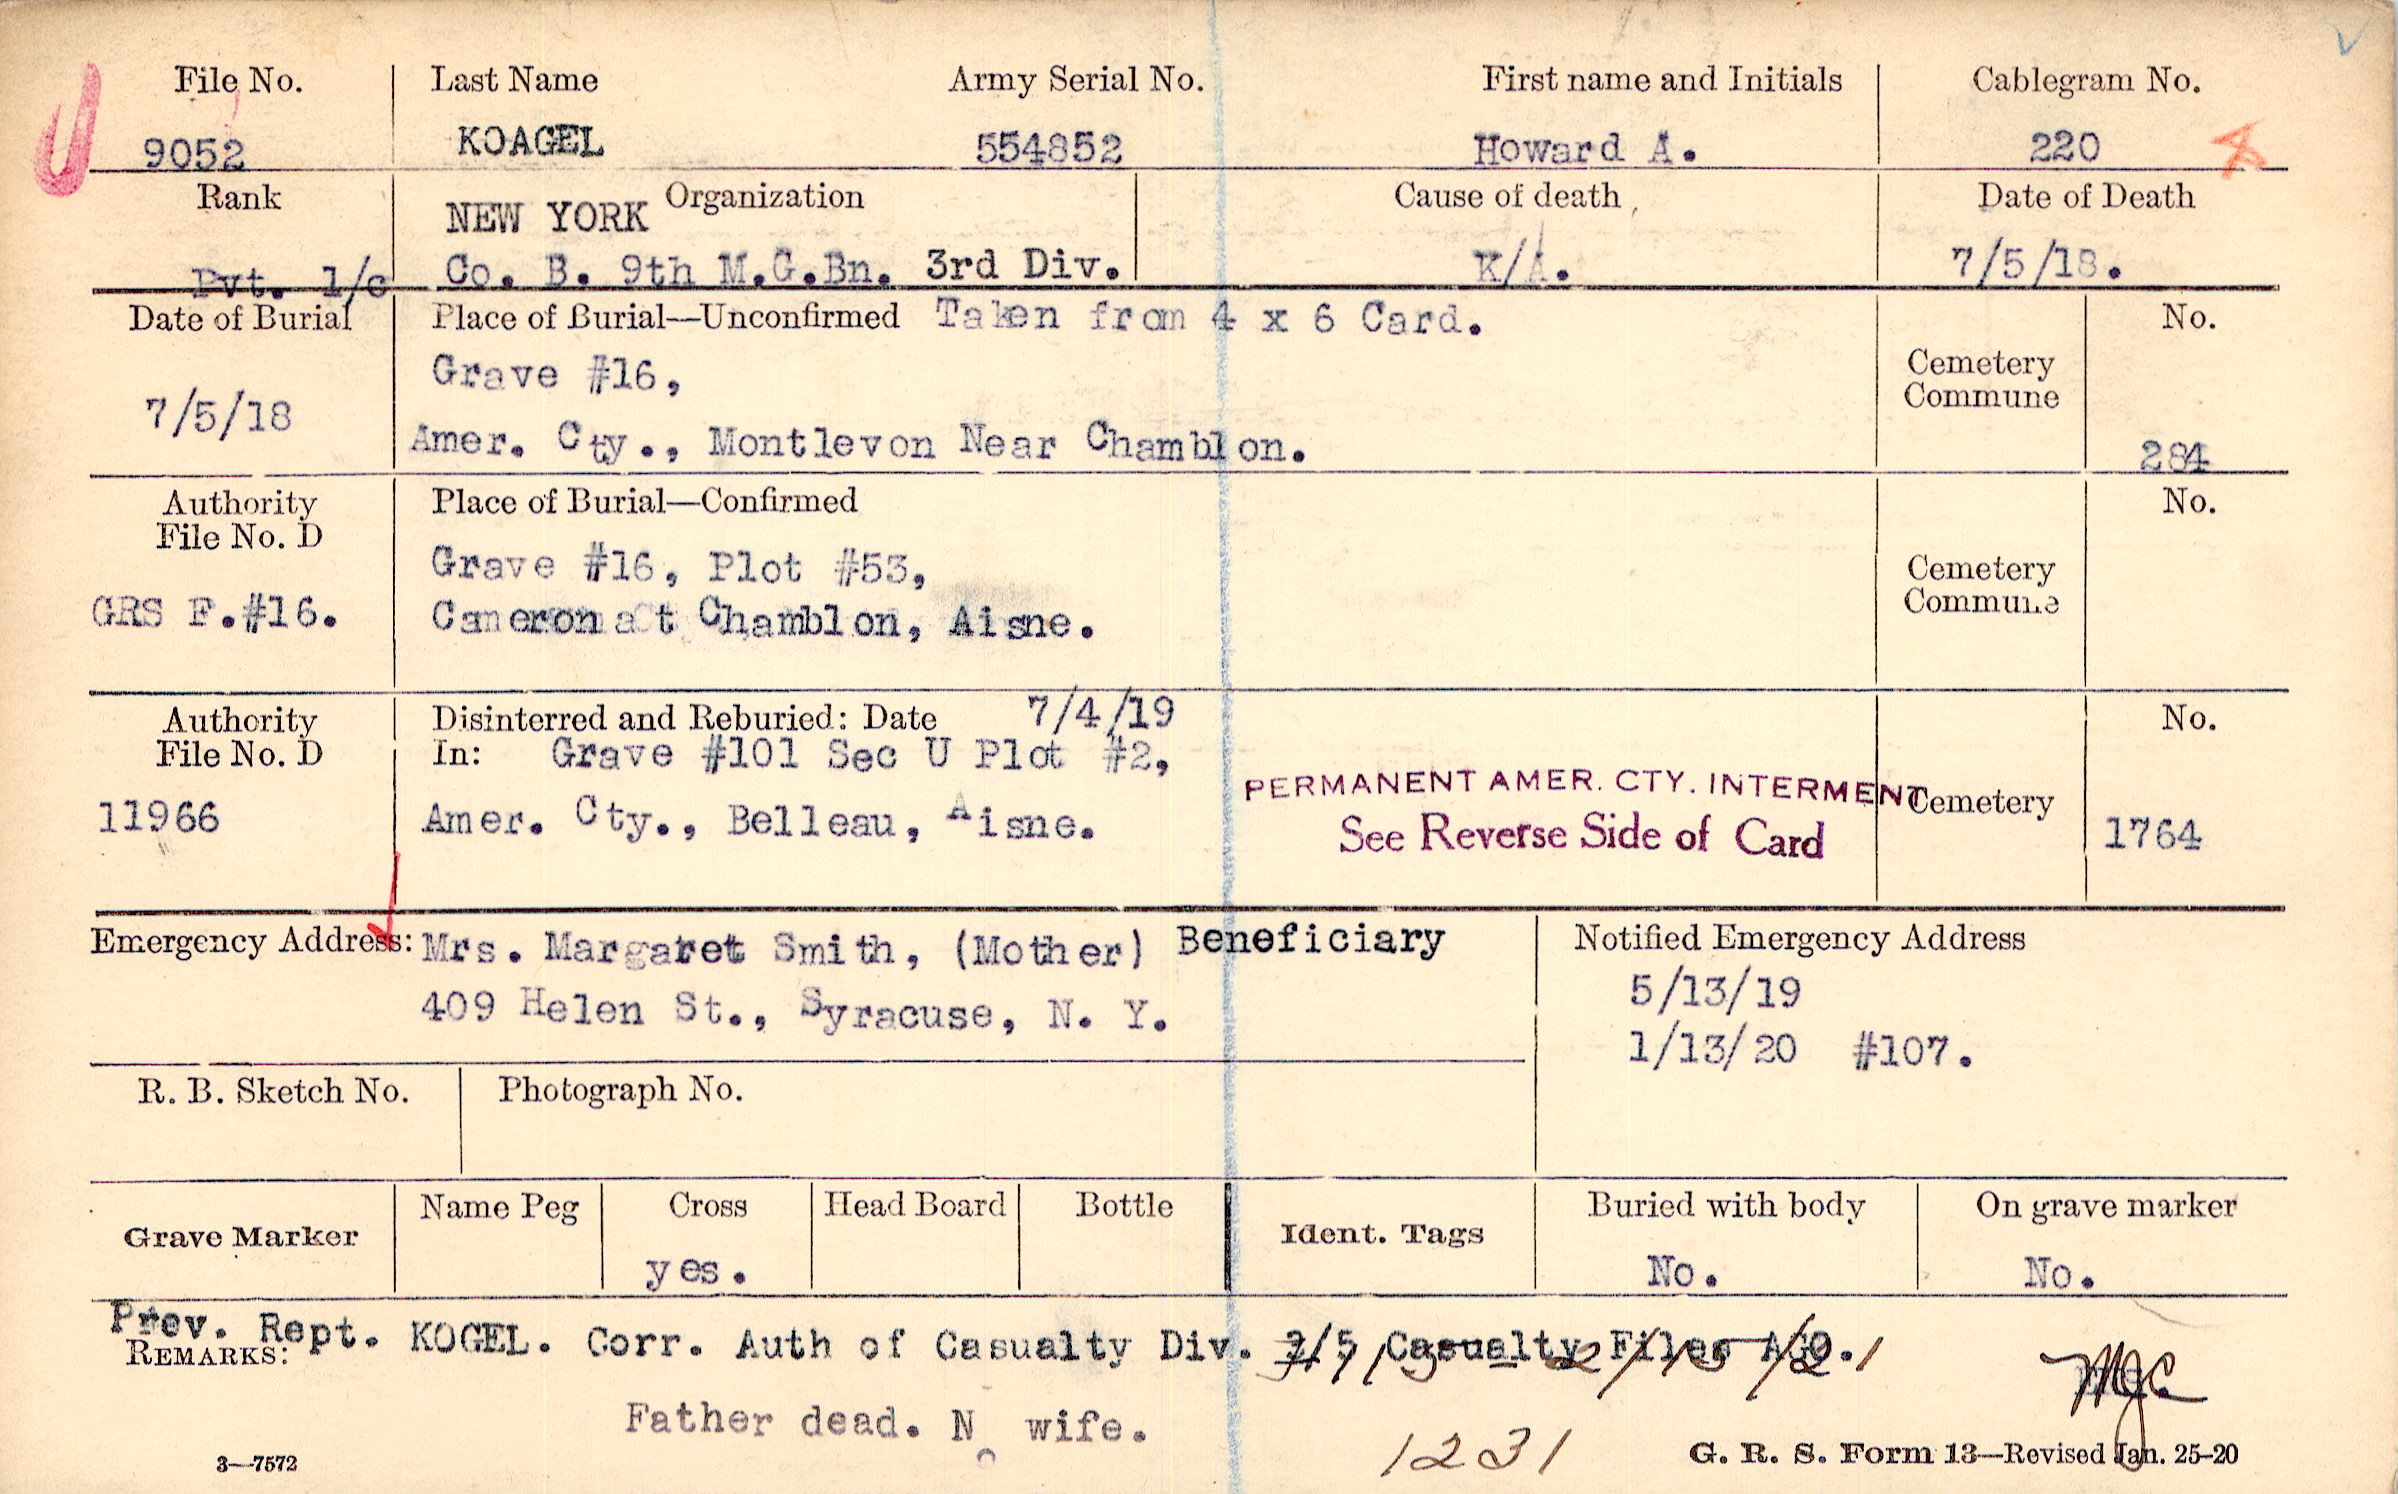 File No. Last Name Army Serial No. First name and Initials Cablegram No.
9052 KOAGEL 554852 Howard A. 220
Rank Organization Cause of death Date of Death
NEW YORK
Pvt. 1/c Co. B. 9th M.G.Bn. 3rd Div. K/A. 7/5/18.
Date of Burial Place of Burial—Unconfirmed Taken from 4 x 6 Card. No.
Grave #16, Cemetery
7/5/18 Commune
Amer. Cty., Montlevon Near Chamblon. 284
Authority Place of Burial—Confirmed No.
File No. D
Grave #16, Plot #53, Cemetery
GRS F.#16. Cameron at Chamblon, Aisne. Commune
Authority Disinterred and Reburied: Date 7/4/19 No.
File No. D In: Grave #101 Sec U Plot #2,
PERMANENT AMER. CTY. INTERMENT
11966 Amer. Cty., Belleau, Aisne. See Reverse Side of Card Cemetery 1764
Emergency Address: Mrs. Margaret Smith, (Mother) Beneficiary Notified Emergency Address
5/13/19
409 Helen St., Syracuse, N. Y.
1/13/20 #107.
R. B. Sketch No. Photograph No.
Grave Marker Name Peg Cross Head Board Bottle Ident. Tags Buried with body On grave marker
yes. No. No.
Prev. Rept. KOGEL. Corr. Auth of Casualty Div. Casualty Files AGO.
REMARKS:
Father dead. No wife.
1231
3—7572 G. R. S. Form 13—Revised Jan. 25-20